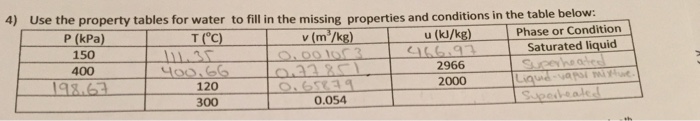 4) Use the property tables for water to fill in the missing properties and conditions in the table below:
P (kPa) T (°C) v (m³/kg) u (kJ/kg) Phase or Condition
150 111.35 0.001053 466.97 Saturated liquid
400 400.66 0.77851 2966 Superheated
198.67 120 0.65879 2000 Liquid-vapor mixture
300 0.054 Superheated